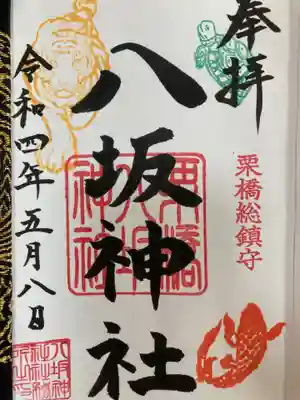 奉拝
栗橋総鎮守
八坂神社
栗橋
八坂
神社
令和四年五月八日